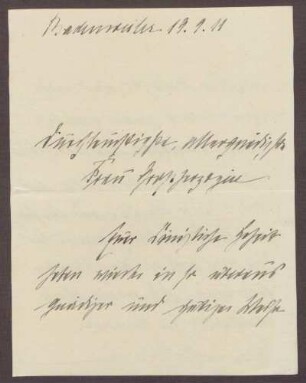 Badenweiler 19.9.11
Durchlauchtigste, allergnädigste
Frau Großherzogin
Eure Königliche Hoheit
haben wieder in so überaus
gnädiger und gütiger Weise